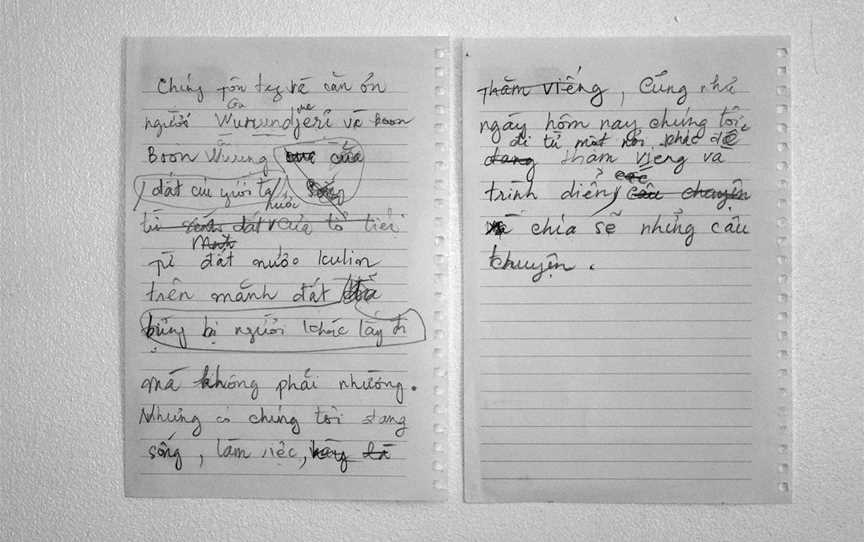 Chúng tôn tay và cản ơn
Của
người Wurundjeri và Boon
Boon Wurung của
đất củi giưới ta
nước
từ đất của tổ tiên
từ đất nước kulin
trên mảnh đất đã
bị người khác lấy đi
mà không phải nhường.
Nhưng có chúng tôi đang
sống, làm việc,
thăm viếng, Cũng như
ngày hôm nay chúng tôi
đi từ một nơi khác để
đang thăm viếng và
các
trình diễn câu chuyện
và chia sẽ những câu
chuyện.